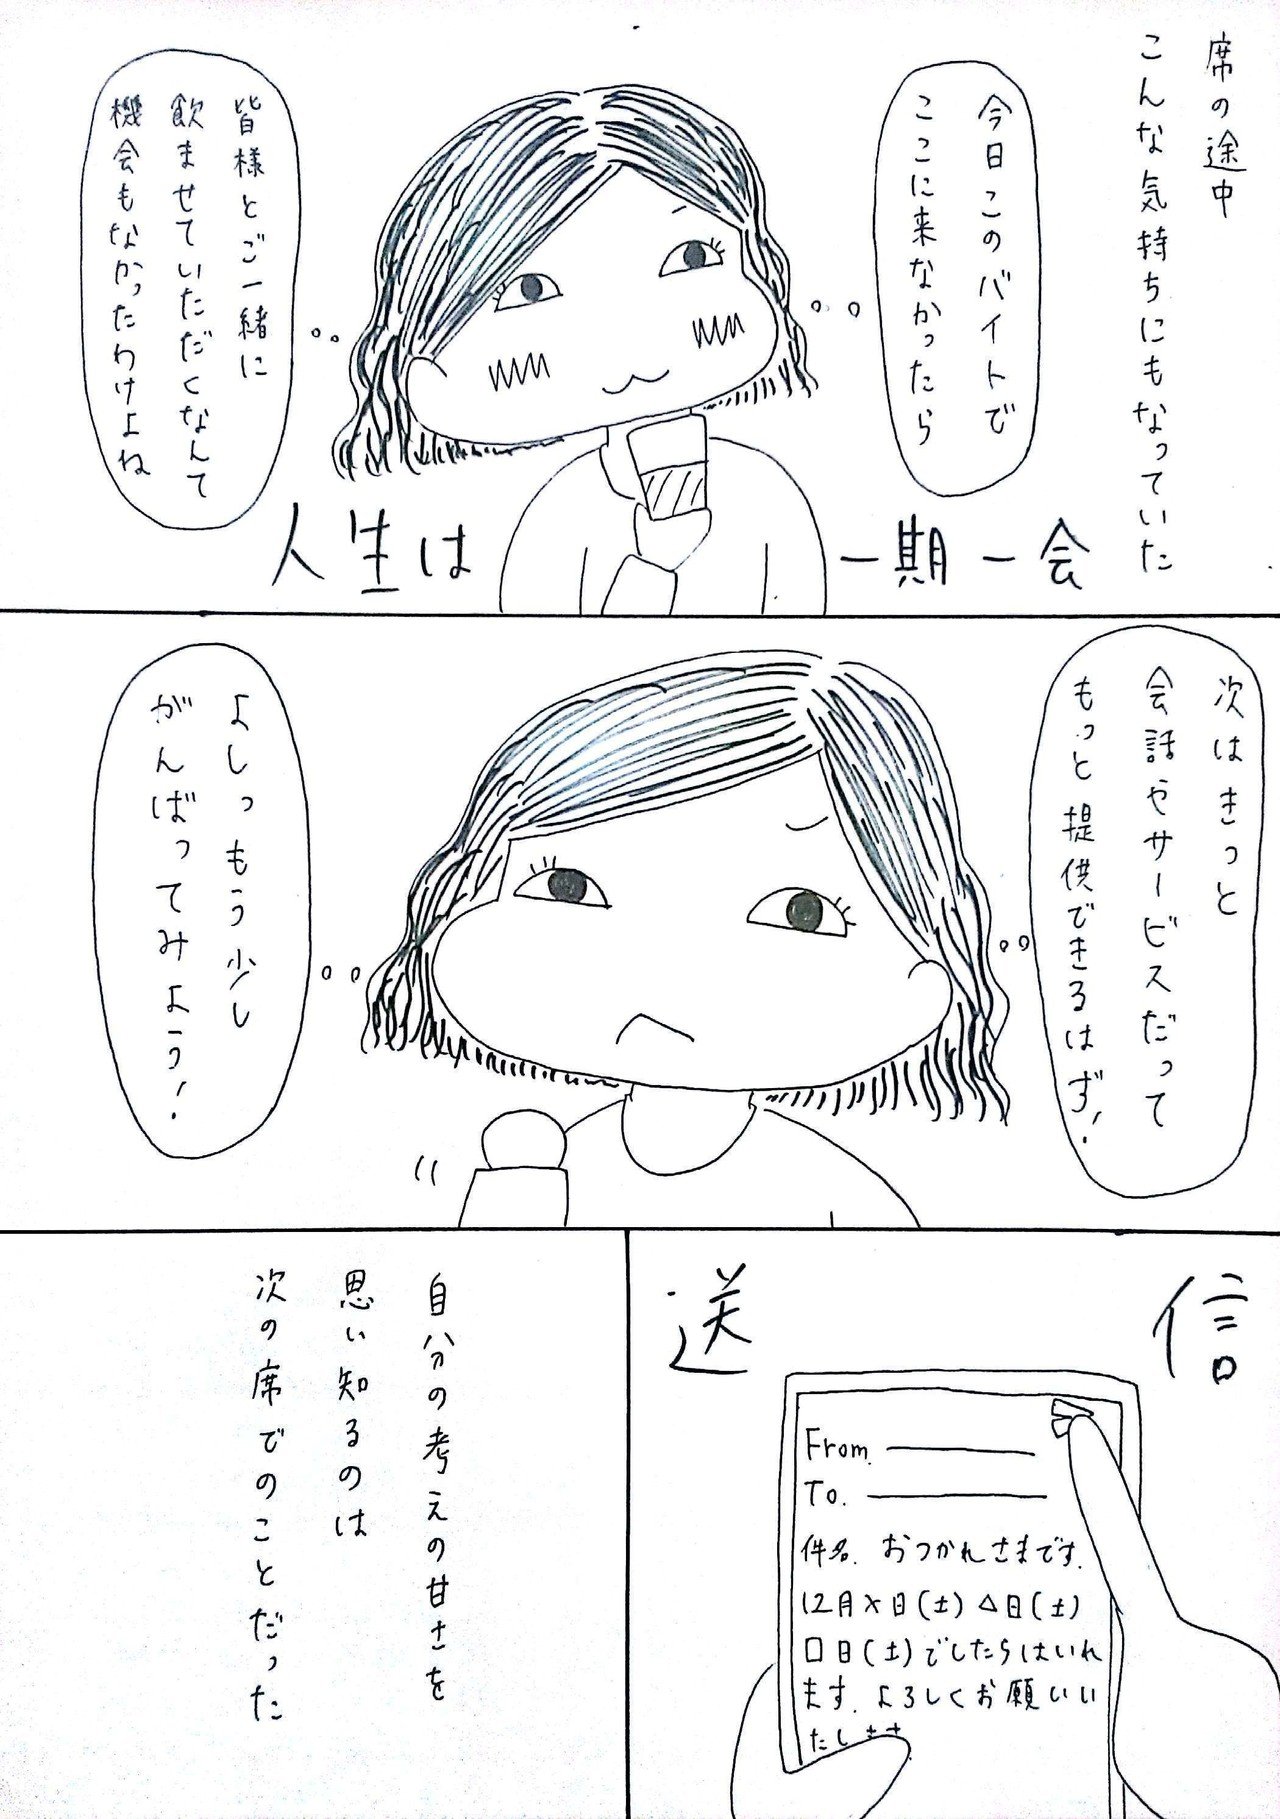 席の途中
こんな気持ちにもなっていた
今日このバイトで
ここに来なかったら
皆様とご一緒に
飲ませていただくなんて
機会もなかったわけよね
人生は一期一会
次はきっと
会話やサービスだって
もっと提供できるはず!
よしっもう少し
がんばってみよう!
送信
From.
To.
件名. おつかれさまです.
12月×日(土)△日(土)
□日(土)でしたらはいれ
ます. よろしくお願いい
たします
自分の考えの甘さを
思い知るのは
次の席でのことだった